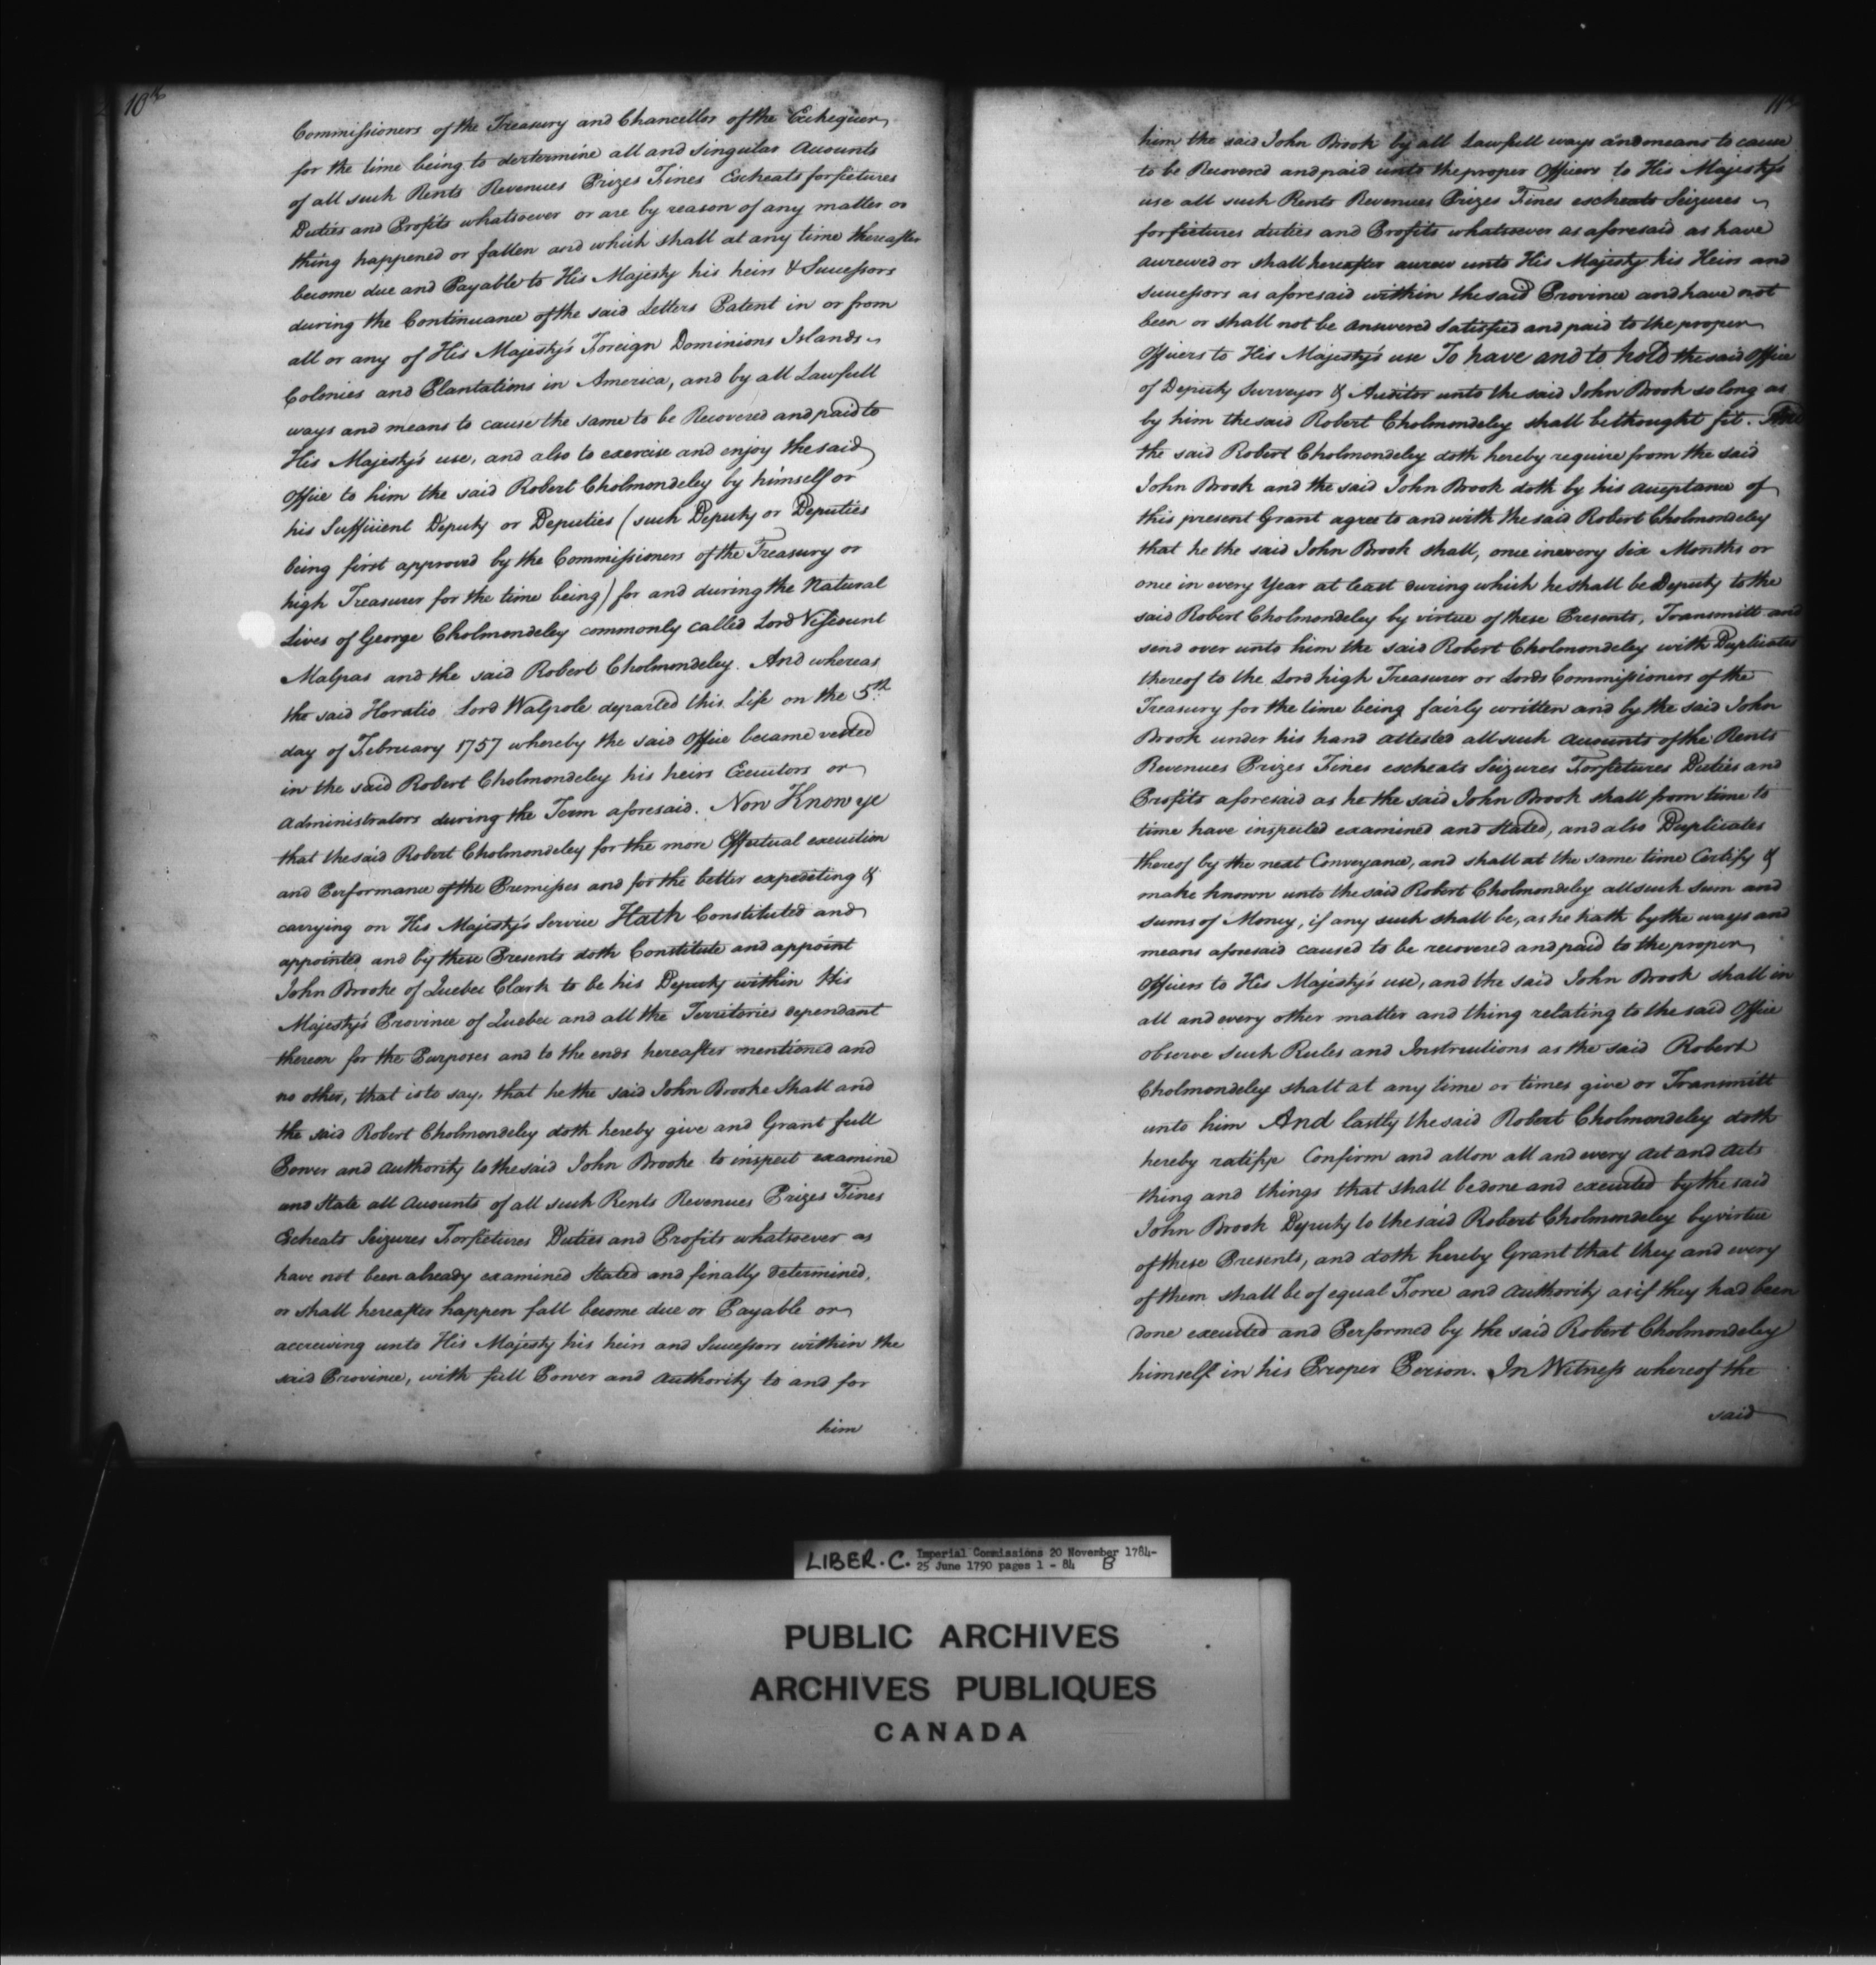 10th
Commissioners of the Treasury and Chancellor of the Exchequer
for the time being to dertermine all and singular Accounts
of all such Rents Revenues Prizes Fines Escheats forfietures
Duties and Profits whatsoever or are by reason of any matter or
thing happened or fallen and which shall at any time thereafter
become due and Payable to His Majesty his heirs & Successors
during the Continuance of the said Letters Patent in or from
all or any of His Majesty's Foreign Dominions Islands
Colonies and Plantations in America, and by all Lawfull
ways and means to cause the same to be Recovered and paid to
His Majesty's use, and also to exercise and enjoy the said
Office to him the said Robert Cholmondeley by himself or
his Sufficient Deputy or Deputies (such Deputy or Deputies
being first approved by the Commissioners of the Treasury or
high Treasurer for the time being) for and during the Natural
Lives of George Cholmondeley commonly called Lord Viscount
Malpas and the said Robert Cholmondeley. And whereas
the said Horatio Lord Walpole departed this Life on the 5th
day of February 1757 whereby the said Office became vested
in the said Robert Cholmondeley his heirs Executors or
Administrators during the Term aforesaid. Now Know ye
that the said Robert Cholmondeley for the more Effectual execution
and Performance of the Premisses and for the better expediting &
carrying on His Majesty's Service Hath Constituted and
appointed and by these Presents doth Constitute and appoint
John Brooke of Quebec Clark to be his Deputy within His
Majesty's Province of Quebec and all the Territories dependant
thereon for the Purposes and to the ends hereafter mentioned and
no other, that is to say, that he the said John Brooke Shall and
the said Robert Cholmondeley doth hereby give and Grant full
Power and Authority to the said John Brooke to inspect examine
and State all Accounts of all such Rents Revenues Prizes Fines
Escheats Seizures Forfietures Duties and Profits whatsoever as
have not been already examined Stated and finally determined,
or shall hereafter happen fall become due or Payable or
accrewing unto His Majesty his heirs and Successors within the
said Province, with full Power and Authority to and for
him
11th
him the said John Brook by all Lawfull ways and means to cause
to be Recovered and paid unto the proper Officers to His Majesty's
use all such Rents Revenues Prizes Fines escheats Seizures
forfietures duties and Profits whatsoever as aforesaid as have
accrewed or shall hereafter accrew unto His Majesty his Heirs and
Successors as aforesaid within the said Province and have not
been or shall not be Answered Satisfied and paid to the proper
Officers to His Majesty's use To have and to hold the said Office
of Deputy Surveyor & Auditor unto the said John Brook so long as
by him the said Robert Cholmondeley shall be thought fit. And
the said Robert Cholmondeley doth hereby require from the said
John Brook and the said John Brook doth by his acceptance of
this present Grant agree to and with the said Robert Cholmondeley
that he the said John Brook shall, once in every Six Months or
once in every Year at least during which he shall be Deputy to the
said Robert Cholmondeley by virtue of these Presents, Transmitt and
send over unto him the said Robert Cholmondeley with Duplicates
thereof to the Lord high Treasurer or Lords Commissioners of the
Treasury for the time being fairly written and by the said John
Brook under his hand attested all such Accounts of the Rents
Revenues Prizes Fines escheats Seizures Forfietures Duties and
Profits aforesaid as he the said John Brook shall from time to
time have inspected examined and stated, and also Duplicates
thereof by the next Conveyance, and shall at the same time Certify &
make known unto the said Robert Cholmondeley all such Sum and
sums of Money, if any such shall be, as he hath by the ways and
means aforesaid caused to be recovered and paid to the proper
Officers to His Majesty's use, and the said John Brook shall in
all and every other matter and thing relating to the said Office
observe such Rules and Instructions as the said Robert
Cholmondeley shall at any time or times give or Transmitt
unto him And lastly the said Robert Cholmondeley doth
hereby ratify Confirm and allow all and every Act and Acts
thing and things that shall be done and executed by the said
John Brook Deputy to the said Robert Cholmondeley by virtue
of these Presents, and doth hereby Grant that they and every
of them shall be of equal Force and Authority as if they had been
done executed and Performed by the said Robert Cholmondeley
himself in his Proper Person. In Witness whereof the
said
LIBER. C. Imperial Commissions 20 November 1784-
25 June 1790 pages 1 - 84 B
PUBLIC ARCHIVES
ARCHIVES PUBLIQUES
CANADA